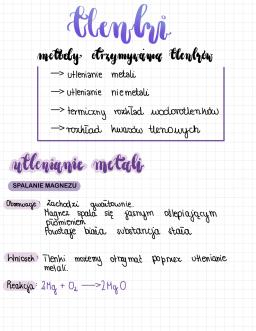 tlenki
metody otrzymywania tlenków
→ utlenianie metali
→ utlenianie niemetali
→ termiczny rozkład wodorotlenków
→ rozkład kwasów tlenowych
utlenianie metali
SPALANIE MAGNEZU
Obserwacje: Zachodzi gwałtownie.
Magnez spala się jasnym oślepiającym
płomieniem.
Powstaje biała substancja stała
Wniosek: Tlenki możemy otrzymać poprzez utlenianie
metali.
Reakcja: 2Mg + O₂ → 2MgO